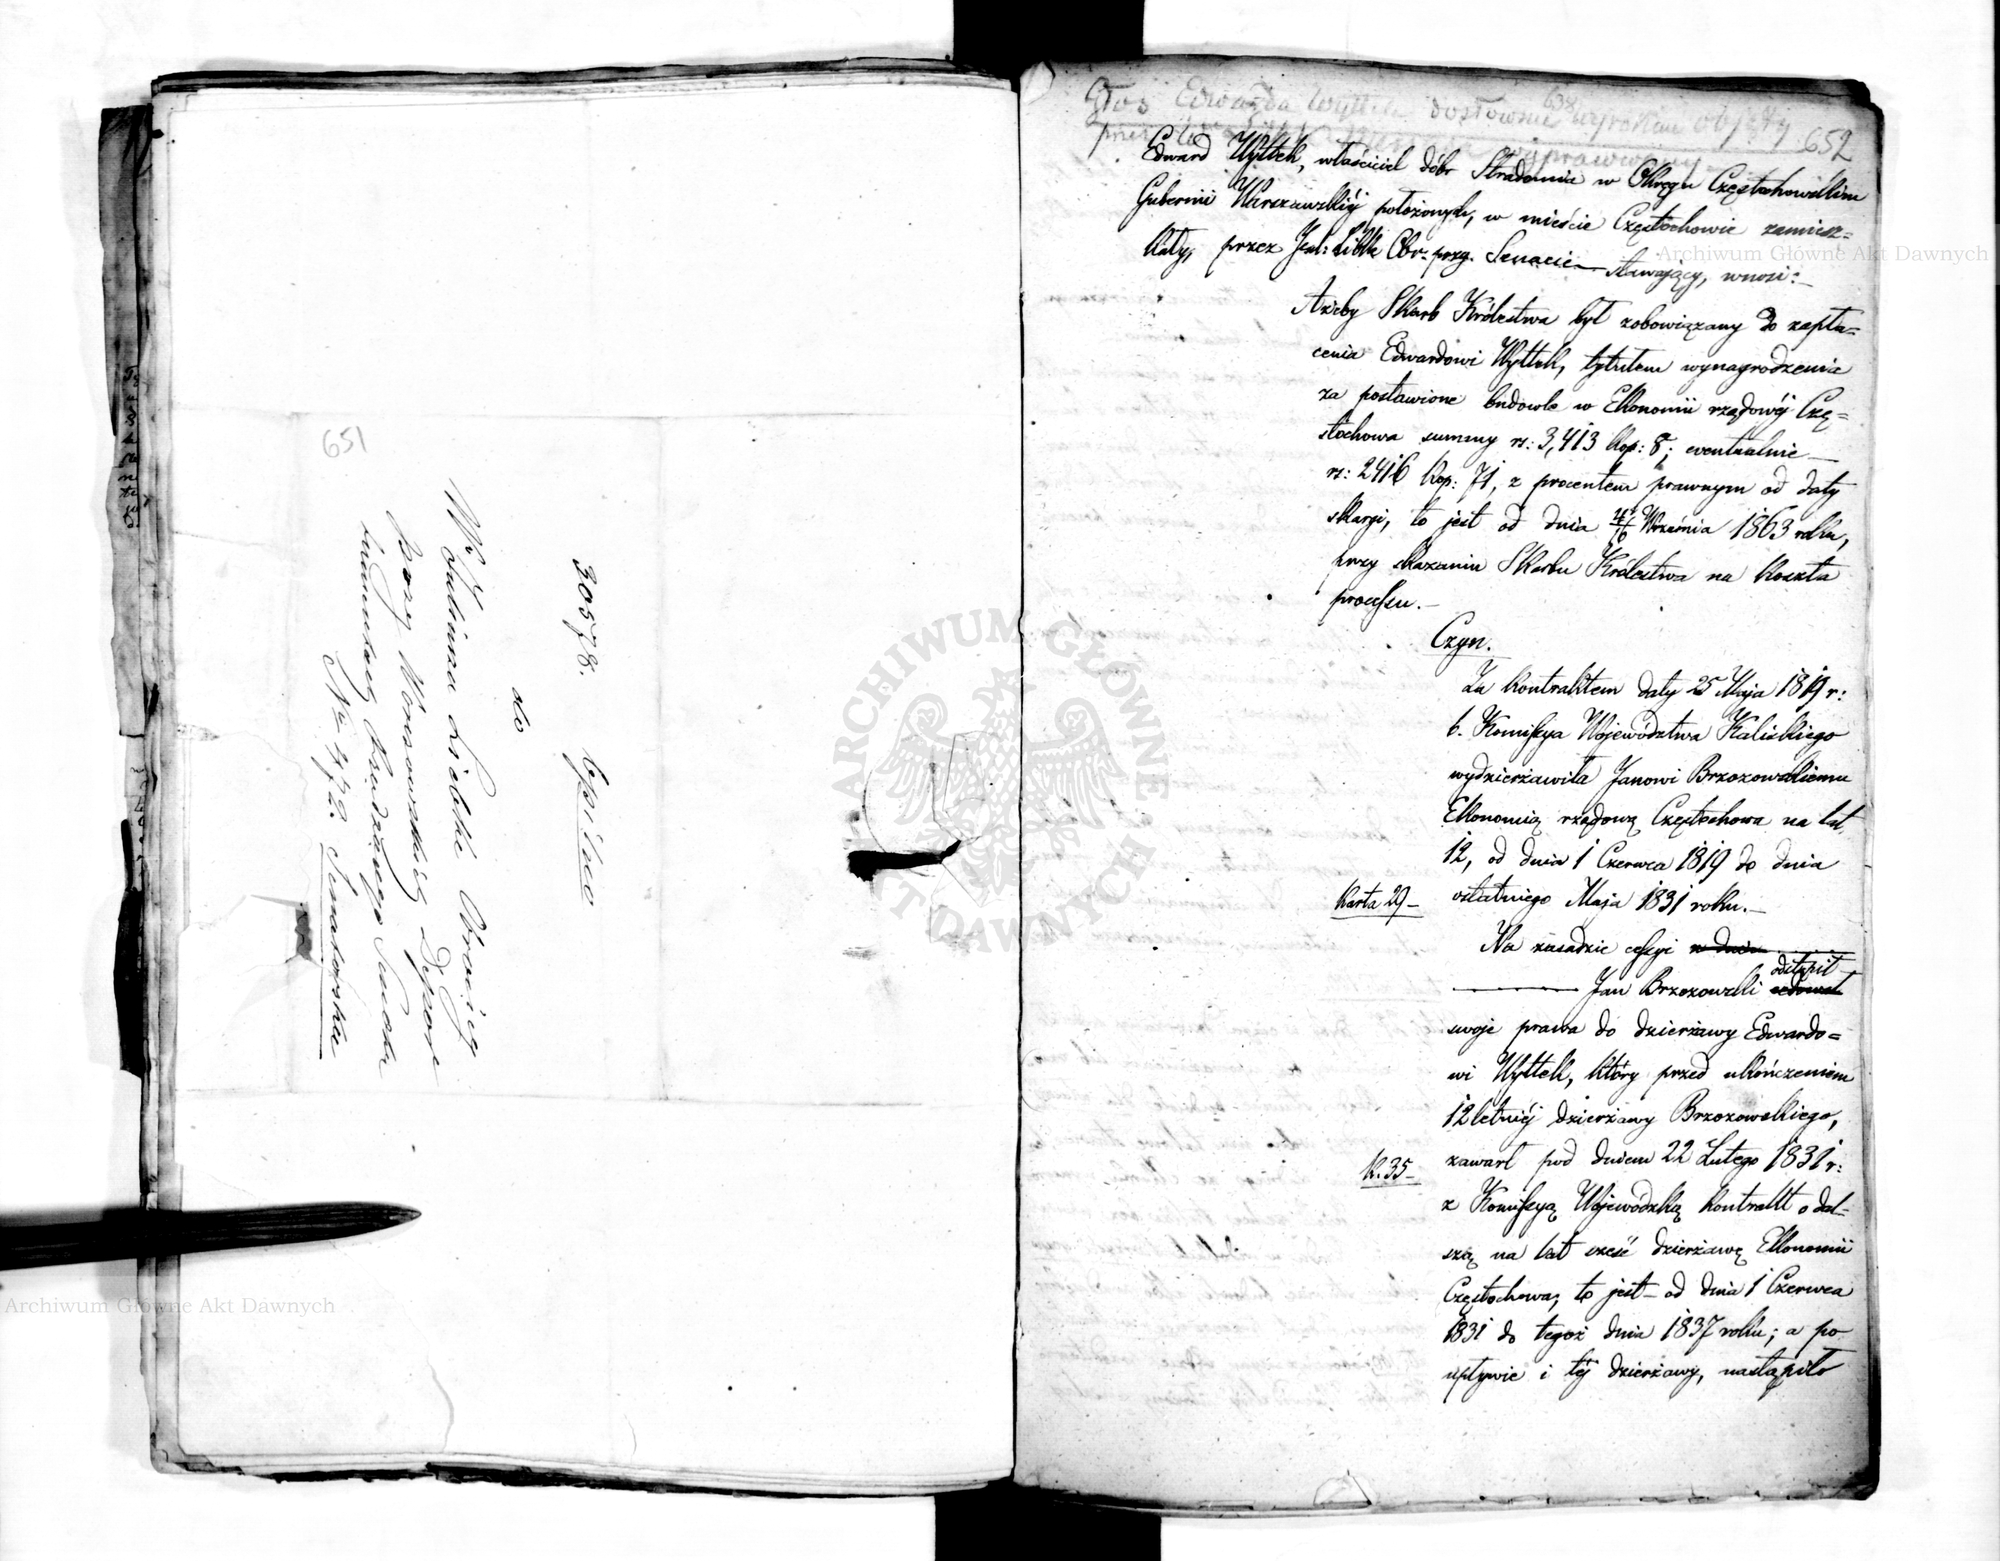 651
30578. Opılac
do
W. Juliusza Liebk Obrońcy
przy Warszawskich Depar
tamentach Rządzącego Senatu
Nr 472. Senatorska
638
Głos Edwarda Wyttek dosłownie wyrokiem objęty
652
Edward Wyttek, właściciel dóbr Stradomia w Okręgu Częstochowskim
Gubernii Warszawskiéj położonych, w mieście Częstochowie zamiesz=
kały, przez Jul: Libke Obr. przy Senacie stawający, wnosi:
Ażeby Skarb Królestwa był zobowiązany do zapła=
cenia Edwardowi Wyttek, tytułem wynagrodzenia
za postawione budowle w Ekonomii rządowéj Czę=
stochowa summy rs: 3,413 kop: 8; eventualnie
rs: 2416 kop: 71, z procentem prawnym od daty
skargi, to jest od dnia Września 1863 roku,
przy skazaniu Skarbu Królestwa na koszta
processu.
Czyn.
Za kontraktem daty 25 Maja 1819 r:
b. Kommissya Województwa Kaliskiego
wydzierżawiła Janowi Brzozowskiemu
Ekonomią rządową Częstochowa na lat
12, od dnia 1 Czerwca 1819 do dnia
karta 29 ostatniego Maja 1831 roku.
Na zasadzie cessyi w dniu
odstąpił
Jan Brzozowski cedował
swoje prawa do dzierżawy Edwardo=
wi Wyttek, który przed ukończeniem
12letniéj dzierżawy Brzozowskiego,
k. 35 zawarł pod dniem 22 Lutego 1831 r:
z Komissyą Wojewódzką kontrakt o dal-
szą na lat sześć dzierżawę Ekonomii
Częstochowa, to jest od dnia 1 Czerwca
1831 do tegoż dnia 1837 roku; a po
upływie i téj dzierżawy, nastąpiło
Archiwum Główne Akt Dawnych
Archiwum Główne Akt Dawnych
ARCHIWUM GŁÓWNE AKT DAWNYCH